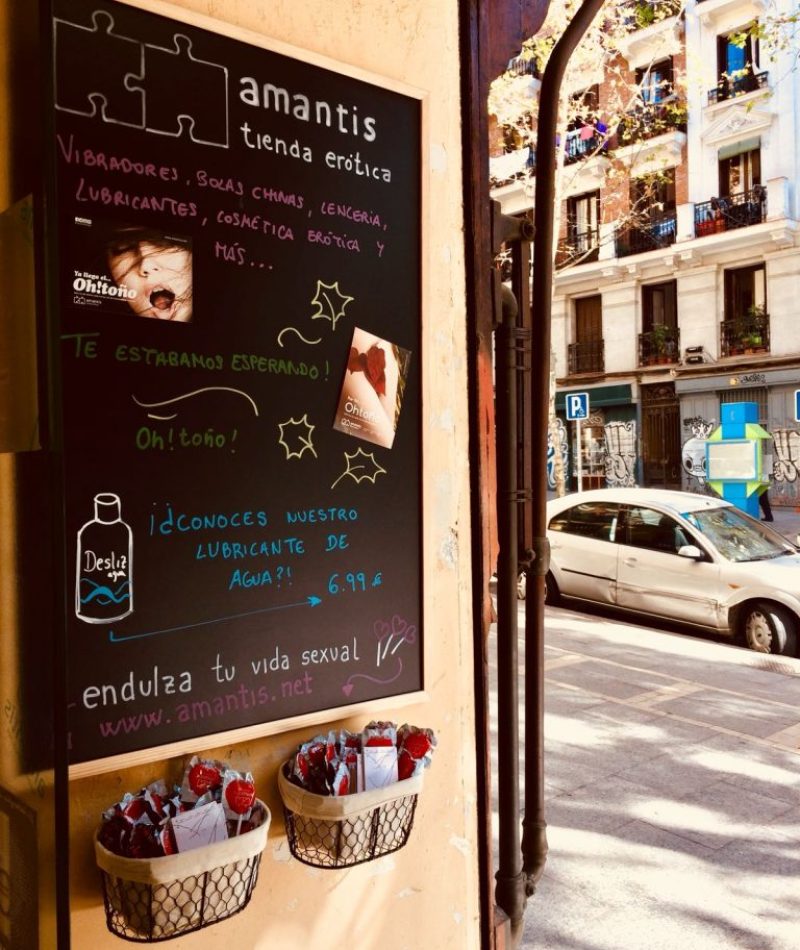 amantis
tienda erótica
VIBRADORES, BOLAS CHINAS, LENCERÍA,
LUBRICANTES, COSMÉTICA ERÓTICA Y
MÁS...
Ya llega el...
Oh!toño
amantis
TE ESTABAMOS ESPERANDO!
Oh!toño
Oh!toño!
¡¿CONOCES NUESTRO
LUBRICANTE DE
AGUA?! 6.99 €
Desliz
agua
endulza tu vida sexual
www.amantis.net
P